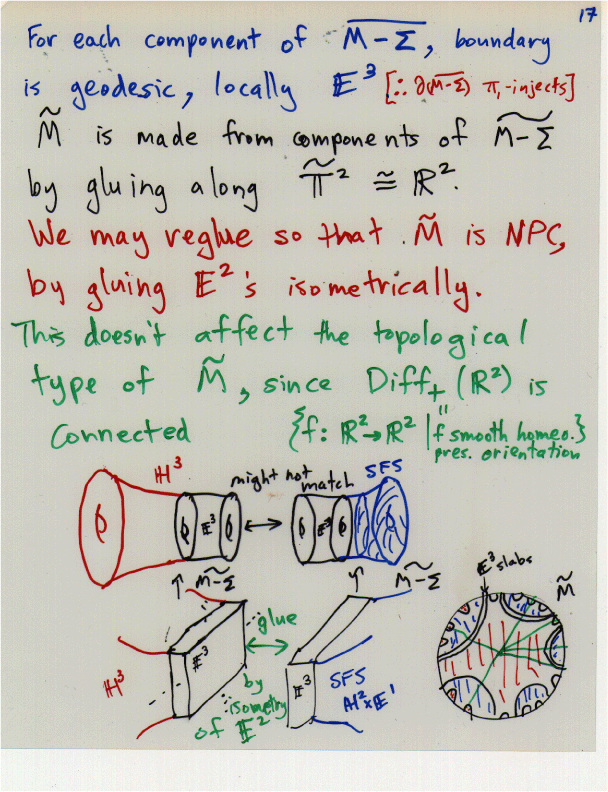 17
For each component of \overline{M-Σ}, boundary
is geodesic, locally 𝔼³ [∴ ∂(\overline{M-Σ}) π₁-injects]
M̃ is made from components of \widetilde{M-Σ}
by gluing along \widetilde{𝕋}² ≅ ℝ².
We may reglue so that M̃ is NPC,
by gluing 𝔼²'s isometrically.
This doesn't affect the topological
type of M̃, since Diff₊(ℝ²) is
connected
"
{f: ℝ²→ℝ² | f smooth homeo.}
pres. orientation
ℍ³
might not
match
SFS
𝔼³
𝔼³
\widetilde{M-Σ}
\widetilde{M-Σ}
𝔼³ slabs
M̃
glue
𝔼³
𝔼³
ℍ³
by
isometry
of 𝔼²
SFS
ℍ²×𝔼¹